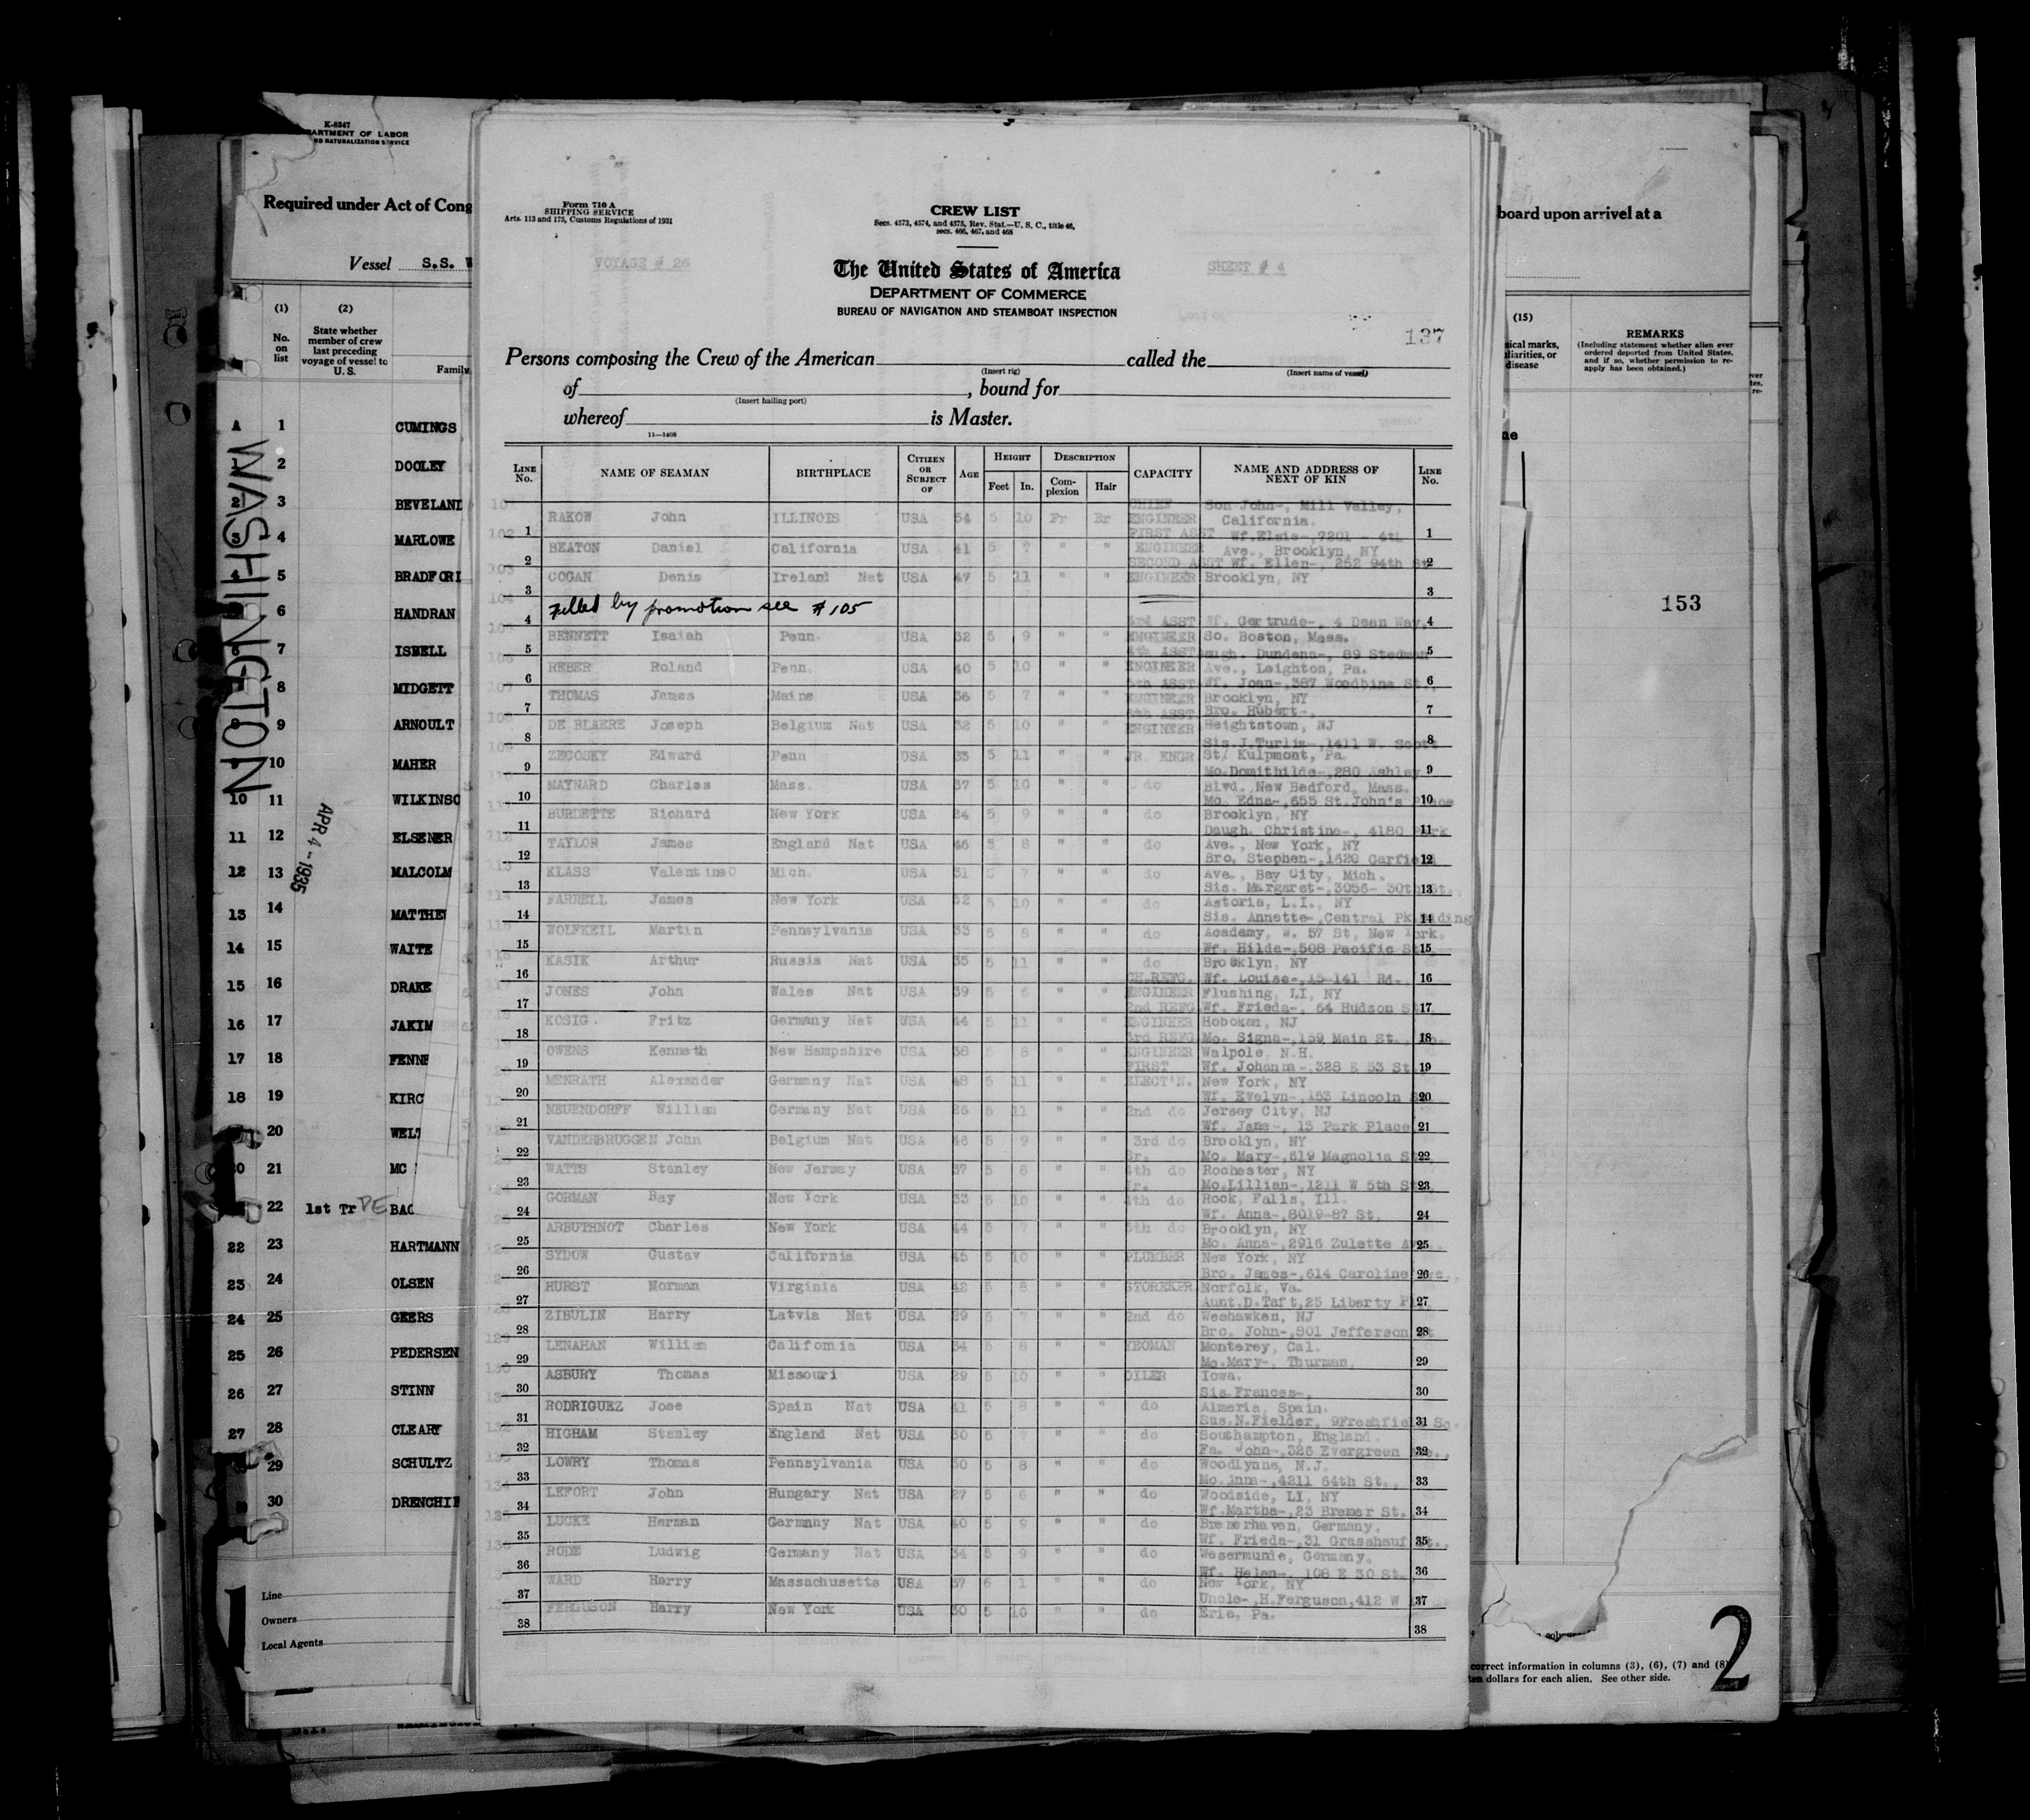 K-8347
ARTMENT OF LABOR
ND NATURALIZATION SERVICE
Required under Act of Cong
Vessel S.S. W
(1) (2)
No. on list
State whether member of crew last preceding voyage of vessel to U. S.
Family
A 1 CUMINGS
1 2 DOOLEY
2 3 BEVELAND
3 4 MARLOWE
4 5 BRADFORD
6 HANDRAN
7 ISBELL
8 MIDGETT
9 ARNOULT
10 MAHER
10 11 WILKINSO
11 12 ELSENER
12 13 MALCOLM
13 14 MATTHE
14 15 WAITE
15 16 DRAKE
16 17 JAKIM
17 18 FENN
18 19 KIRC
20 WELT
20 21 MC
22 1st Tr DE BAC
22 23 HARTMANN
23 24 OLSEN
24 25 GEERS
25 26 PEDERSEN
26 27 STINN
27 28 CLEARY
29 SCHULTZ
30 DRENCHI
WASHINGTON
APR 4 - 1935
Line
Owners
Local Agents
Form 710 A
SHIPPING SERVICE
Arts. 113 and 175, Customs Regulations of 1931
CREW LIST
Secs. 4573, 4574, and 4575, Rev. Stat.—U. S. C., title 46,
secs. 466, 467, and 468
VOYAGE # 26
SHEET # 4
The United States of America
DEPARTMENT OF COMMERCE
BUREAU OF NAVIGATION AND STEAMBOAT INSPECTION
137
Persons composing the Crew of the American called the
(Insert rig) (Insert name of vessel)
of , bound for
(Insert hailing port)
whereof is Master.
11—1408
LINE No. NAME OF SEAMAN BIRTHPLACE CITIZEN OR SUBJECT OF AGE HEIGHT Feet In. DESCRIPTION Complexion Hair CAPACITY NAME AND ADDRESS OF NEXT OF KIN LINE No.
1 RAKOW John ILLINOIS USA 54 5 10 Fr Br CHIEF ENGINEER Son John-, Mill Valley, California. 1
2 BEATON Daniel California USA 41 5 7 " " FIRST ASST ENGINEER Wf.Elsie-,7201 - 4th Ave., Brooklyn, NY 2
3 COGAN Denis Ireland Nat USA 47 5 11 " " SECOND ASST ENGINEER Wf. Ellen-, 252 94th St Brooklyn, NY 3
4 Filled by promotion see # 105 4
5 BENNETT Isaiah Penn. USA 32 5 9 " " 3rd ASST ENGINEER Wf. Gertrude-, 4 Dean Way, So. Boston, Mass. 5
6 REBER Roland Penn. USA 40 5 10 " " 4th ASST ENGINEER Daugh. Dundena-, 89 Stedman Ave., Leighton, Pa. 6
7 THOMAS James Maine USA 36 5 7 " " 5th ASST ENGINEER Wf. Joan-,387 Woodbine St., Brooklyn, NY 7
8 DE BLAERE Joseph Belgium Nat USA 32 5 10 " " 6th ASST ENGINEER Bro. Hubert-, Heightstown, NJ 8
9 ZEGOSKY Edward Penn USA 33 5 11 " " JR. ENGR Sis.J.Turlis-,1411 W. Scott St/ Kulpmont, Pa. 9
10 MAYNARD Charles Mass. USA 37 5 10 " " do Mo.Domithilde-,280 Ashley Blvd.,New Bedford, Mass. 10
11 BURDETTE Richard New York USA 24 5 9 " " do Mo. Edna-,655 St.John's Place Brooklyn, NY 11
12 TAYLOR James England Nat USA 46 5 8 " " do Daugh. Christine-, 4180 Park Ave., New York, NY 12
13 KLASS Valentino Mich. USA 31 5 7 " " do Bro. Stephen-,1620 Garfield Ave., Bay City, Mich. 13
14 FARRELL James New York USA 32 5 10 " " do Sis. Margaret-,3056- 30th St., Astoria, L.I., NY 14
15 WOLFKEIL Martin Pennsylvania USA 33 5 8 " " do Sis. Annette-,Central Pk.Riding Academy, W. 57 St, New York. 15
16 KASIK Arthur Russia Nat USA 35 5 11 " " do Wf. Hilda-,508 Pacific St Brooklyn, NY 16
17 JONES John Wales Nat USA 39 5 6 " " CH.REFG. ENGINEER Wf. Louise-,15-141 Rd., Flushing, LI, NY 17
18 KOSIG. Fritz Germany Nat USA 44 5 11 " " 2nd REFG ENGINEER Wf. Frieda-, 64 Hudson St Hoboken, NJ 18
19 OWENS Kenneth New Hampshire USA 38 5 8 " " 3rd REFG ENGINEER Mo. Signa-,159 Main St. Walpole, N.H. 19
20 MENRATH Alexander Germany Nat USA 48 5 11 " " FIRST ELECT'N. Wf. Johanna-,328 E 53 St New York, NY 20
21 NEUENDORFF William Germany Nat USA 26 5 11 " " 2nd do Wf. Evelyn-,153 Lincoln Jersey City, NJ 21
22 VANDERBRUGGEN John Belgium Nat USA 46 5 9 " " 3rd do Wf. Jane-, 13 Park Place Brooklyn, NY 22
23 WATTS Stanley New Jersey USA 37 5 8 " " Sr. 4th do Mo. Mary-,619 Magnolia S Rochester, NY 23
24 GORMAN Ray New York USA 33 5 10 " " Jr. 4th do Mo.Lillian-,1211 W 5th St Rock, Falls, Ill. 24
25 ARBUTHNOT Charles New York USA 44 5 7 " " 5th do Wf. Anna-,8019-87 St. Brooklyn, NY 25
26 SYDOW Gustav California USA 45 5 10 " " PLUMBER Mo. Anna-,2916 Zulette Av New York, NY 26
27 HURST Norman Virginia USA 42 5 8 " " STOREKPR Bro. James-,614 Caroline Ave., Norfolk, Va. 27
28 ZIBULIN Harry Latvia Nat USA 29 5 7 " " 2nd do Aunt.D.Taft,25 Liberty Pl Weehawken, NJ 28
29 LENAHAN William California USA 34 5 8 " " YEOMAN Bro. John-,801 Jefferson Monterey, Cal. 29
30 ASBURY Thomas Missouri USA 29 5 10 " " OILER Mo.Mary-, Thurman, Iowa. 30
31 RODRIGUEZ Jose Spain Nat USA 41 5 8 " " do Sis.Frances-, Almeria, Spain. 31
32 HIGHAM Stanley England Nat USA 30 5 7 " " do Sus.N.Fielder, 9Freshfield Sq. Southampton, England. 32
33 LOWRY Thomas Pennsylvania USA 30 5 8 " " do Fa. John-,326 Evergreen Ave., Woodlynne, N.J. 33
34 LEFORT John Hungary Nat USA 27 5 6 " " do Mo.Anna-,4211 64th St., Woodside, LI, NY 34
35 LUCKE Herman Germany Nat USA 40 5 9 " " do Wf.Martha-,23 Bremer St. Bremerhaven, Germany. 35
36 RODE Ludwig Germany Nat USA 34 5 9 " " do Wf. Frieda-,31 Grasshauf St., Wesermunde, Germany. 36
37 WARD Harry Massachusetts USA 37 6 1 " " do Wf. Helen-, 108 E 30 St. New York, NY 37
38 FERGUSON Harry New York USA 30 5 10 " " do Uncle-,H.Ferguson,412 W Erie, Pa. 38
board upon arrival at a
(15)
sical marks, liarities, or disease
REMARKS
(Including statement whether alien ever ordered deported from United States, and if so, whether permission to reapply has been obtained.)
153
correct information in columns (3), (6), (7) and (8)
ten dollars for each alien. See other side.
2